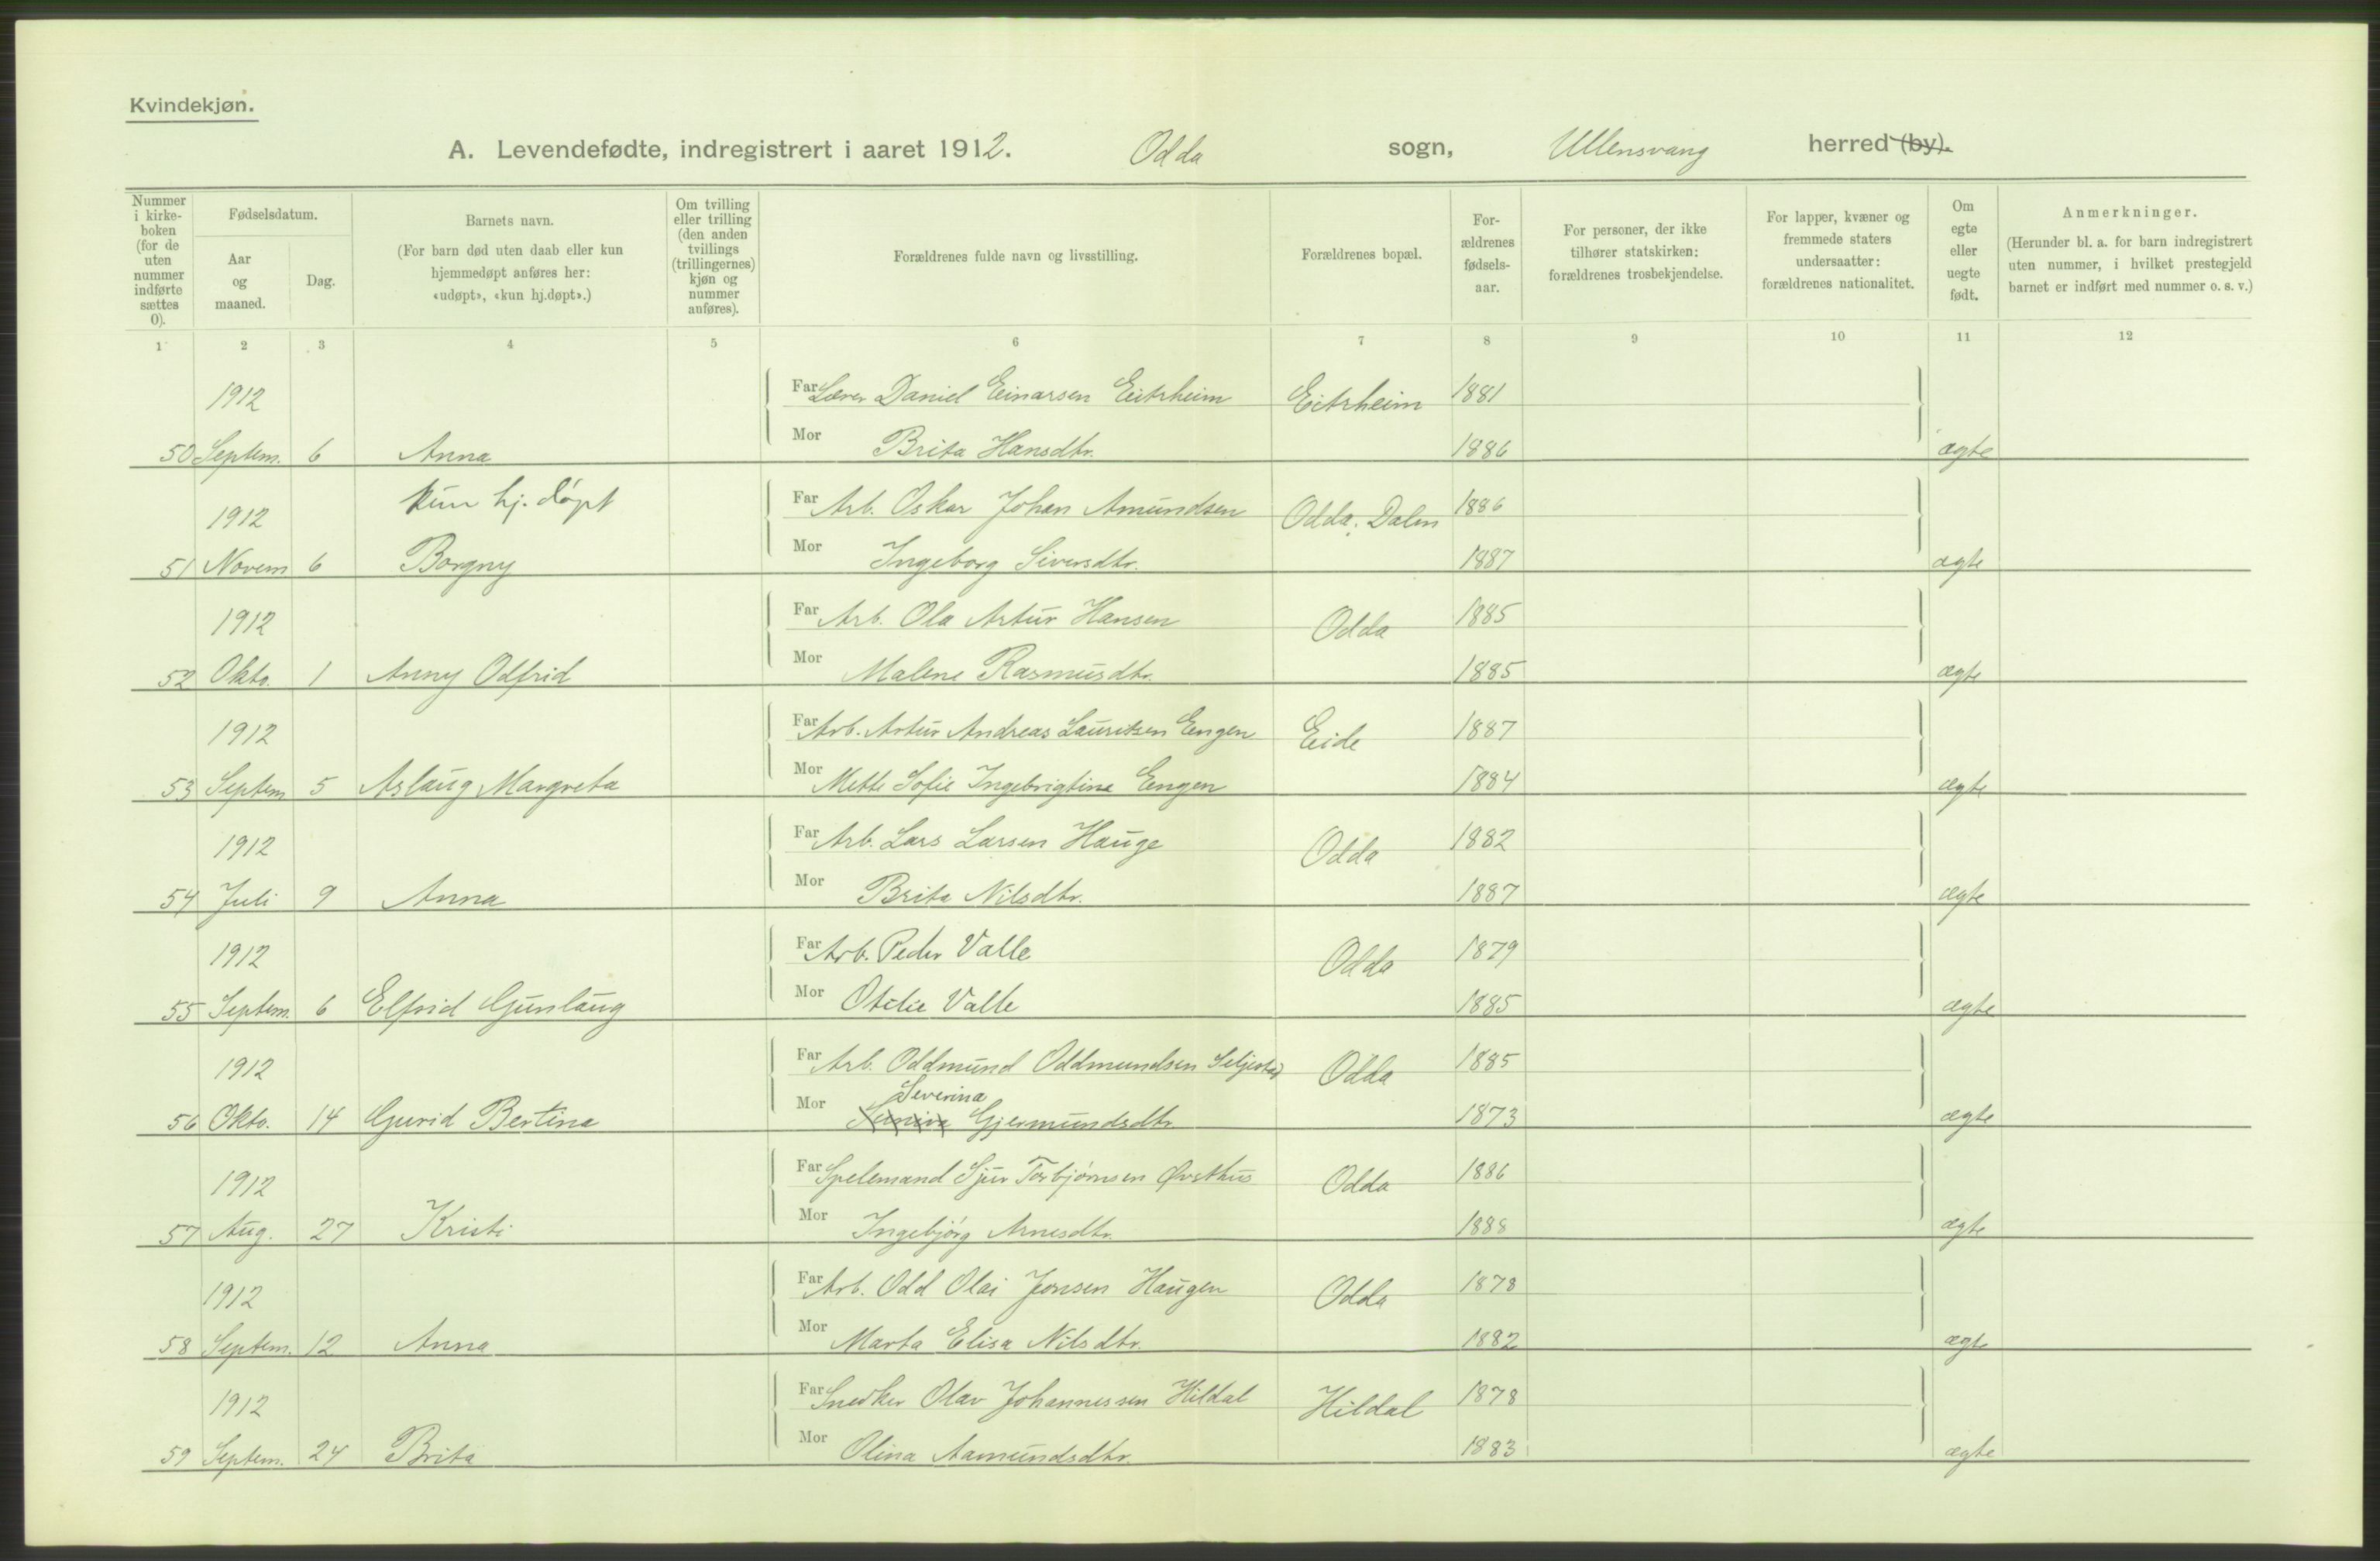 Kvindekjøn.
A. Levendefødte, indregistrert i aaret 1912. Odda sogn, Ullensvang herred (by).
Nummer i kirkeboken (for de uten nummer indførte sættes 0).
Fødselsdatum.
Aar og maaned.
Dag.
Barnets navn.
(For barn død uten daab eller kun hjemmedøpt anføres her: «udøpt», «kun hj.døpt».)
Om tvilling eller trilling (den anden tvillings (trillingernes) kjøn og nummer anføres).
Forældrenes fulde navn og livsstilling.
Forældrenes bopæl.
Forældrenes fødselsaar.
For personer, der ikke tilhører statskirken: forældrenes trosbekjendelse.
For lapper, kvæner og fremmede staters undersaatter: forældrenes nationalitet.
Om egte eller uegte født.
Anmerkninger.
(Herunder bl. a. for barn indregistrert uten nummer, i hvilket prestegjeld barnet er indført med nummer o. s. v.)
1 2 3 4 5 6 7 8 9 10 11 12
1912 Far Lærer Daniel Einarsen Eitrheim Eitrheim 1881
50 Septem. 6 Anna Mor Brita Hansdtr. 1886 ægte
1912 kun hj. døpt Far Arb. Oskar Johan Amundsen Odda, Dalen 1886
51 Novem 6 Borgny Mor Ingeborg Siversdtr. 1887 ægte
1912 Far Arb. Ola Artur Hansen Odda 1885
52 Okto. 1 Anny Odfrid Mor Malene Rasmusdtr. 1885 ægte
1912 Far Arb. Artur Andreas Lauritsen Engen Eide 1887
53 Septem 5 Aslaug Margreta Mor Mette Sofie Ingebrigtine Engen 1884 ægte
1912 Far Arb. Lars Larsen Hauge Odda 1882
54 Juli 9 Anna Mor Brita Nilsdtr. 1887 ægte
1912 Far Arb. Peder Valle Odda 1879
55 Septem. 6 Elfrid Gunlaug Mor Otelie Valle 1885 ægte
1912 Far Arb. Oddmund Oddmundsen Seljestad Odda 1885
Severina
56 Okto. 14 Gurid Bertina Mor Gjermundsdtr. 1873 ægte
1912 Far Spelemand Sjur Torbjørnsen Øvsthus Odda 1886
57 Aug. 27 Kristi Mor Ingebjørg Arnesdtr. 1888 ægte
1912 Far Arb. Odd Olai Jonsen Haugen Odda 1878
58 Septem. 12 Anna Mor Marta Elisa Nilsdtr. 1882 ægte
1912 Far Snedker Olav Johannessen Hildal Hildal 1878
59 Septem. 24 Brita Mor Olina Aamundsdtr. 1883 ægte